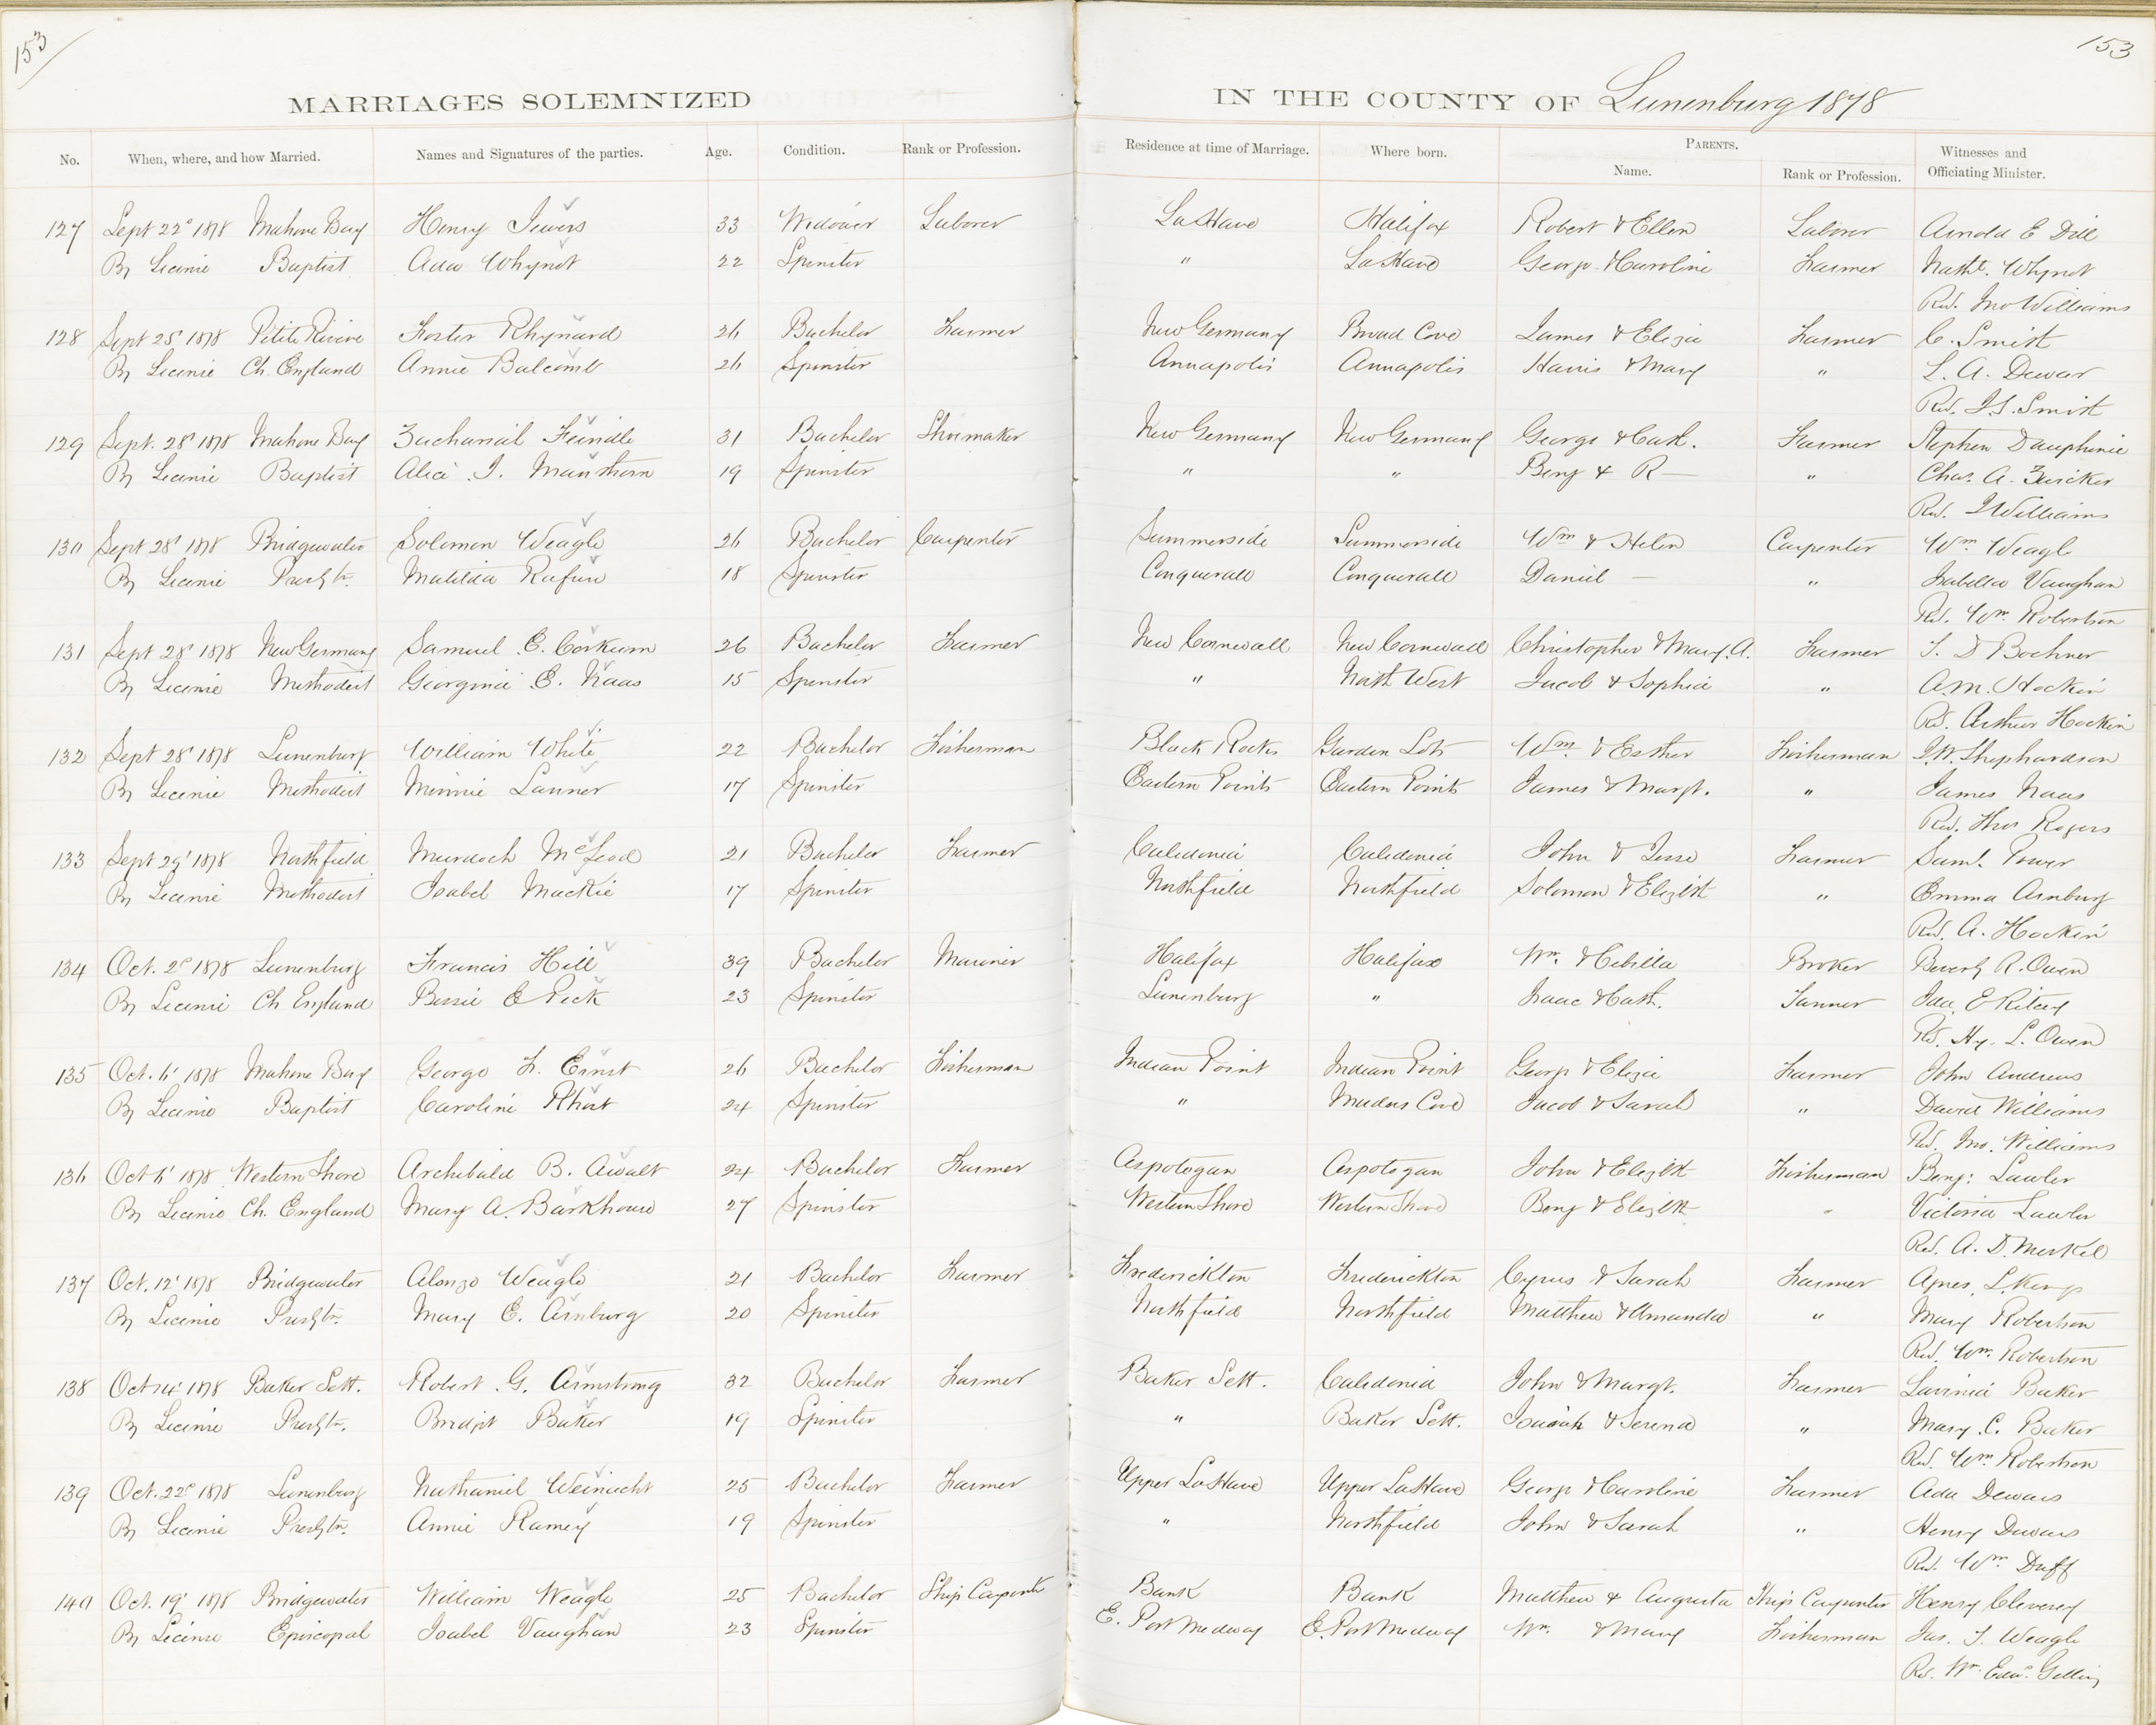 153
153
MARRIAGES SOLEMNIZED IN THE COUNTY OF Lunenburg 1878
No. When, where, and how Married. Names and Signatures of the parties. Age. Condition. Rank or Profession. Residence at time of Marriage. Where born. PARENTS. Name. Rank or Profession. Witnesses and Officiating Minister.
127 Sept 22d 1878 Mahone Bay Henry Jewers 33 Widower Laborer LaHave Halifax Robert & Ellen Laborer Arnold E Dill
By License Baptist Ada Whynot 22 Spinster " LaHave George & Caroline Farmer Nathl. Whynot
Rev. Jno Williams
128 Sept 25' 1878 Petite Riviere Foster Rhynard 26 Bachelor Farmer New Germany Broad Cove James & Eliza Farmer C. Smith
By License Ch. England Annie Balcomb 26 Spinster Annapolis Annapolis Harris & Mary " L. A. Dewar
Rev. Smith
129 Sept. 28' 1878 Mahone Bay Zachariah Feindle 31 Bachelor Shoemaker New Germany New Germany George & Cath. Farmer Stephen Dauphinie
By License Baptist Alice I. Manthorn 19 Spinster " " Benj & R— " Chas. A. Zwicker
Rev. J Williams
130 Sept 28' 1878 Bridgewater Solomon Weagle 26 Bachelor Carpenter Summerside Summerside Wm & Helen Carpenter Wm Weagle
By License Presbtn. Matilda Rafuse 18 Spinster Conquerall Conquerall Daniel — " Isabella Vaughan
Rev. Wm. Robertson
131 Sept 28' 1878 New Germany Samuel E. Corkum 26 Bachelor Farmer New Cornwall New Cornwall Christopher & Mary A. Farmer S. D Bochner
By License Methodist Georgina E. Naas 15 Spinster " North West Jacob & Sophia " A.M. Hockin
Rev. Arthur Hockin
132 Sept 28' 1878 Lunenburg William White 22 Bachelor Fisherman Black Rocks Garden Lots Wm & Esther Fisherman J.W. Shephardson
By License Methodist Minnie Lanner 17 Spinster Eastern Points Eastern Points James & Margt. " James Naas
Rev. Thos Rogers
133 Sept 29' 1878 Northfield Murdoch McLeod 21 Bachelor Farmer Caledonia Caledonia John & Jesse Farmer Saml. Power
By License Methodist Isabel Mackie 17 Spinster Northfield Northfield Solomon & Elizbth " Emma Arnburg
Rev. A. Hockin
134 Oct. 2d 1878 Lunenburg Francis Hill 39 Bachelor Mariner Halifax Halifax Wm. & Cibilla Broker Beverly R. Owen
By License Ch England Bessie E Peck 23 Spinster Lunenburg " Isaac & Cath. Tanner Ida. E Ritcey
Rev. Hy. L. Owen
135 Oct. 6' 1878 Mahone Bay George F. Ernst 26 Bachelor Fisherman Indian Point Indian Point George & Eliza Farmer John Andrews
By License Baptist Caroline 24 Spinster " Maders Cove Jacob & Sarah " David Williams
Rev. Jno. Williams
136 Oct 6' 1878 Western Shore Archibald B. Awalt 24 Bachelor Farmer Aspotogan Aspotogan John & Elizbth Fisherman Benj: Lawler
By License Ch. England Mary A. Barkhouse 27 Spinster Western Shore Western Shore Benj & Elizbth " Victoria Lawler
Rev. A. D. Merkel
137 Oct. 12' 1878 Bridgewater Alonzo Weagle 21 Bachelor Farmer Frederickton Frederickton Cyrus & Sarah Farmer Agnes
By License Presbtn. Mary E. Arnburg 20 Spinster Northfield Northfield Matthew & Amanda " Mary Robertson
Rev. Wm. Robertson
138 Oct 14' 1878 Baker Sett. Robert G. Armstrong 32 Bachelor Farmer Baker Sett. Caledonia John & Margt. Farmer Lavinia Baker
By License Presbtn. Bridget Baker 19 Spinster " Baker Sett. Isaiah & Serena " Mary C. Baker
Rev. Wm. Robertson
139 Oct. 22d 1878 Lunenburg Nathaniel Weinacht 25 Bachelor Farmer Upper LaHave Upper LaHave George & Caroline Farmer Ada Dewars
By License Presbtn. Annie Ramey 19 Spinster " Northfield John & Sarah " Henry Dewars
Rev. Wm Duff
140 Oct. 19' 1878 Bridgewater William Weagle 25 Bachelor Ship Carpenter Bank Bank Matthew & Augusta Ship Carpenter Henry Cleversey
By License Episcopal Isabel Vaughan 23 Spinster E. Port Medway E. Port Medway Wm. & Mary Fisherman Jas. S. Weagle
Rev. Wm. Edwd. Gelling